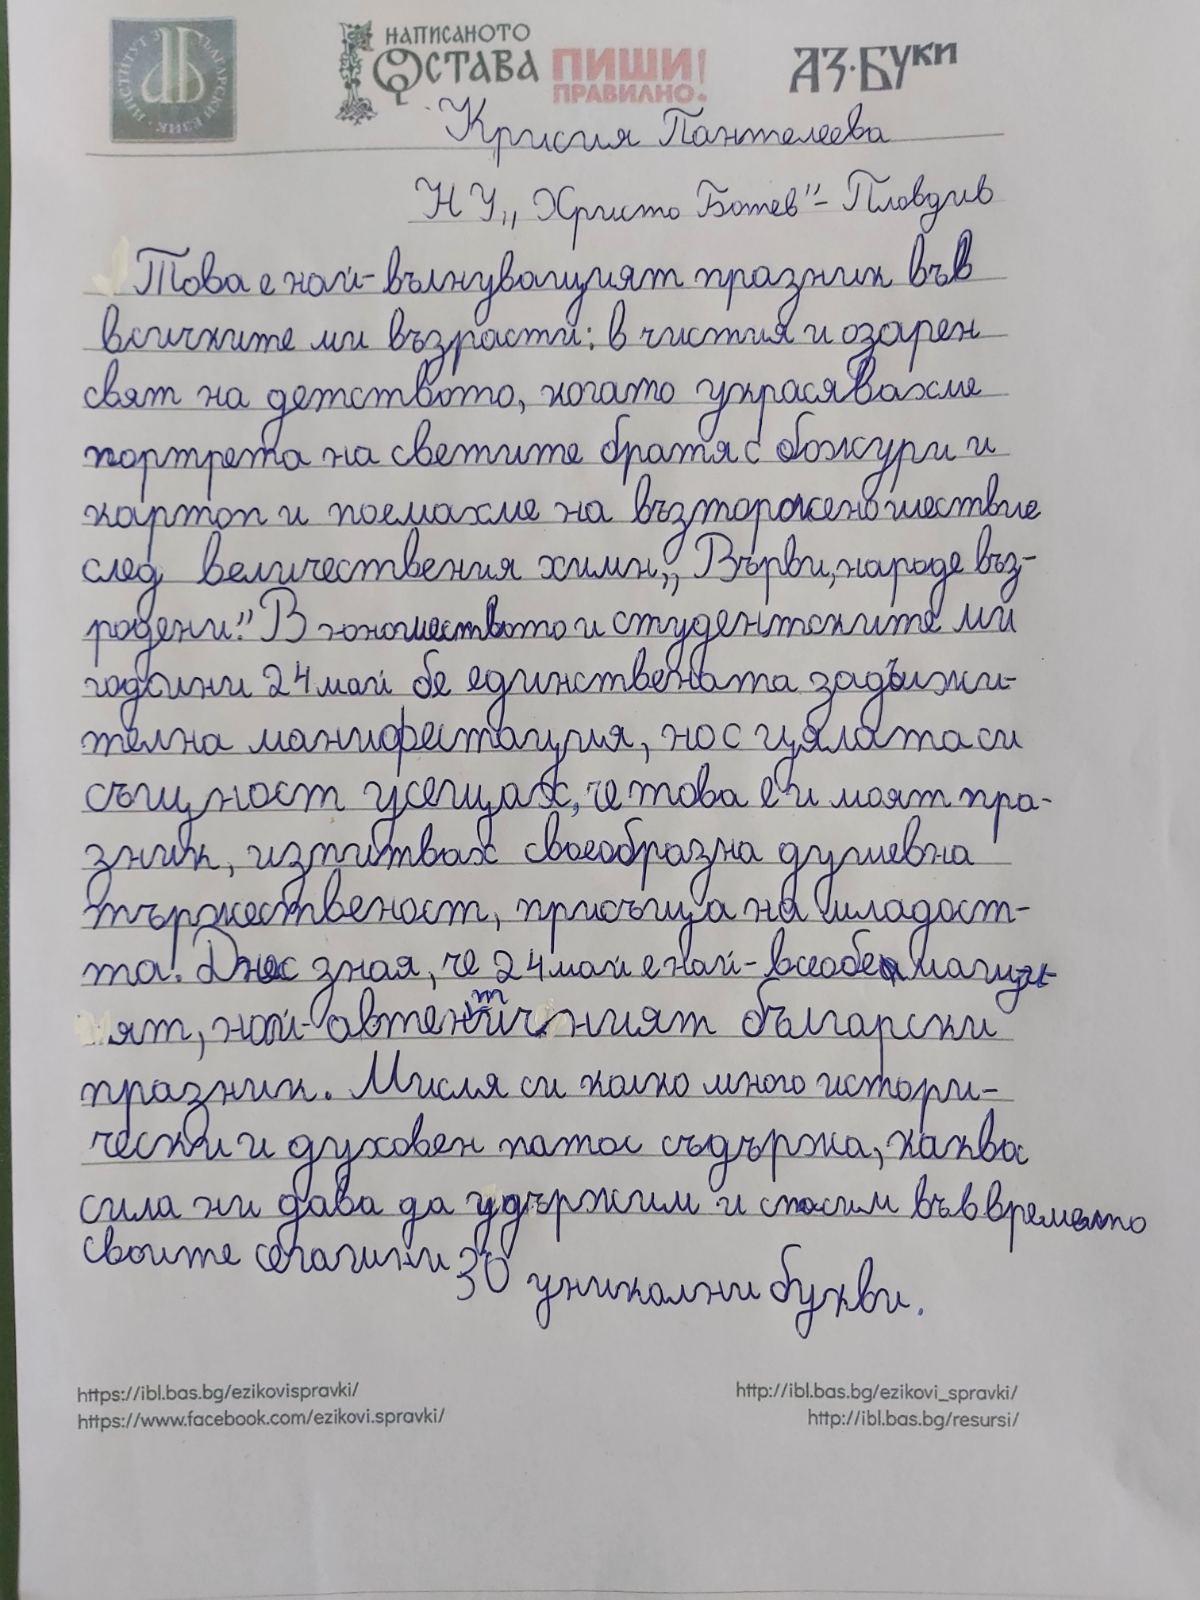 ИНСТИТУТ ЗА БЪЛГАРСКИ ЕЗИК
НАПИСАНОТО
ОСТАВА
ПИШИ!
ПРАВИЛНО!
АЗ·БУКИ
Крисия Пантелеева
НУ „Христо Ботев" - Пловдив
Това е най-вълнуващият празник във
всичките ми възрасти: в чистия и озарен
свят на детството, когато украсявахме
портрета на светите братя с божури и
картон и поемахме на възторжено шествие
след величествения химн „Върви, народе въз-
родени." В юношеството и студентските ми
години 24 май бе единствената задължи-
телна манифестация, но с цялата си
същност усещах, че това е и моят пра-
зник, изпитвах своеобразна душевна
тържественост, присъща на младост-
та. Днес зная, че 24 май е най-
ят, най-автентичният български
празник. Мисля си колко много истори-
чески и духовен патос съдържа, каква
сила ни дава да удържим и спасим във времето
своите сегашни 30 уникални букви.
https://ibl.bas.bg/ezikovispravki/
https://www.facebook.com/ezikovi.spravki/
http://ibl.bas.bg/ezikovi_spravki/
http://ibl.bas.bg/resursi/